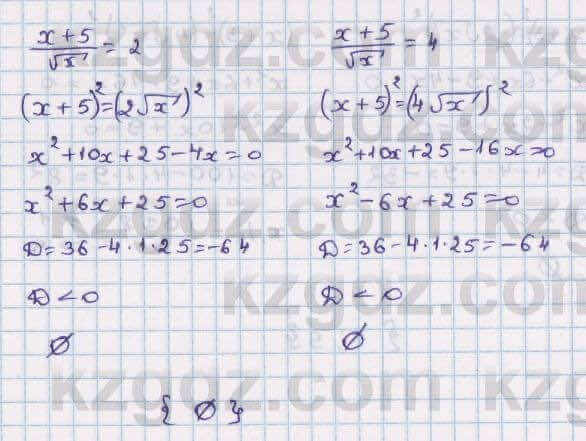 (x+5)/√x = 2
(x+5)²=(2√x)²
x²+10x+25-4x=0
x²+6x+25=0
D=36-4·1·25=-64
D<0
∅
(x+5)/√x = 4
(x+5)²=(4√x)²
x²+10x+25-16x=0
x²-6x+25=0
D=36-4·1·25=-64
D<0
∅
{ ∅ }
kzgdz.com